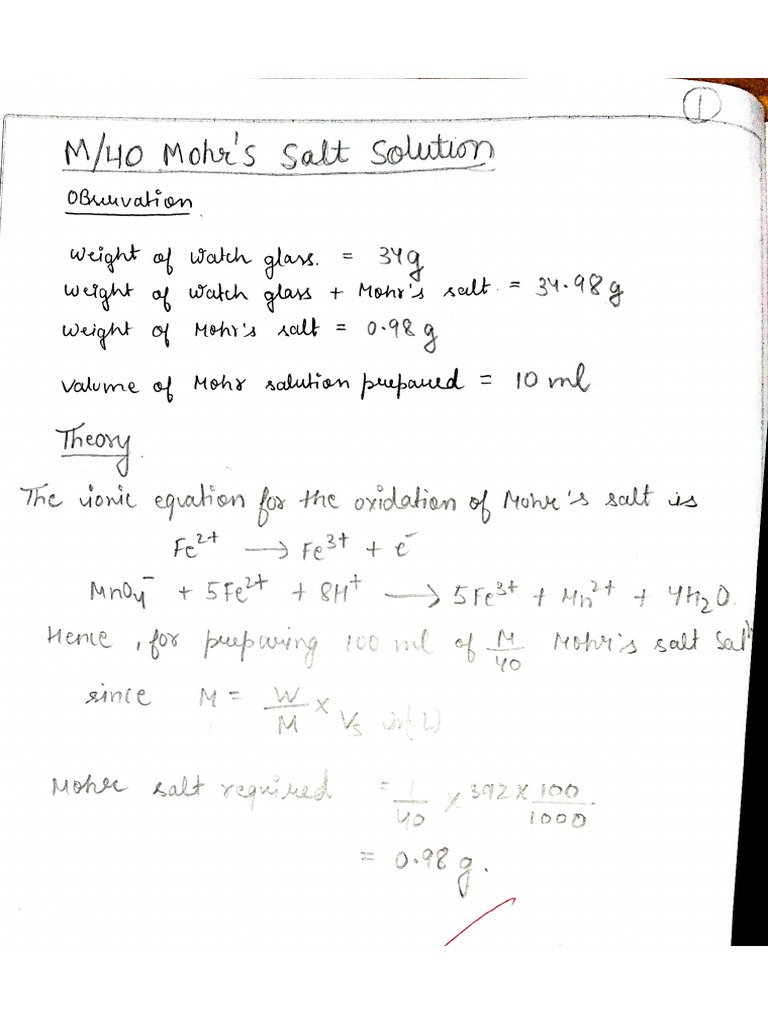 1
M/40 Mohr's Salt Solution
Observation
Weight of watch glass. = 34g
Weight of watch glass + Mohr's salt. = 34.98g
Weight of Mohr's salt = 0.98g
Valume of Mohr salution prepared = 10 ml
Theory
The ionic equation for the oxidation of Mohr's salt is
Fe²⁺ → Fe³⁺ + e⁻
MnO₄⁻ + 5Fe²⁺ + 8H⁺ → 5Fe³⁺ + Mn²⁺ + 4H₂O.
Hence, for preparing 100 ml of M/40 Mohr's salt Solⁿ
since M = W/M × Vs in(L)
Mohr salt required = 1/40 × 392 × 100/1000
= 0.98 g.